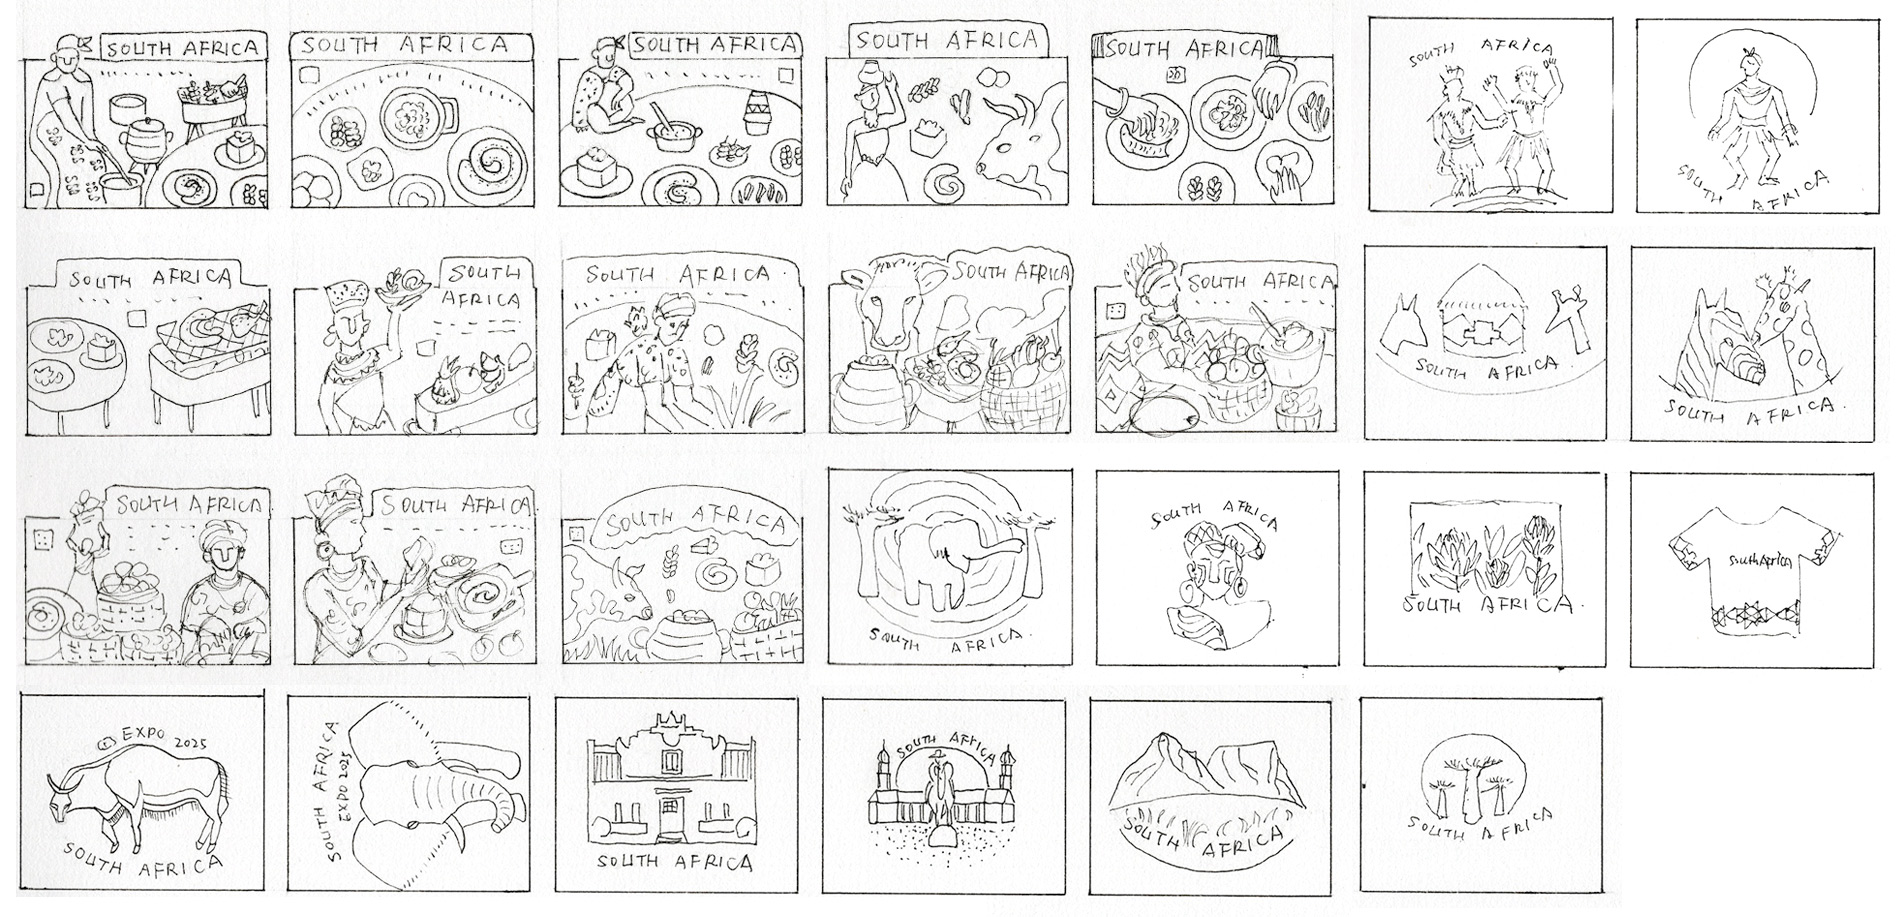 SOUTH AFRICA
SOUTH AFRICA
SOUTH AFRICA
SOUTH AFRICA
SOUTH AFRICA
SOUTH AFRICA
SOUTH AFRICA
SOUTH AFRICA
SOUTH
AFRICA
SOUTH AFRICA.
SOUTH AFRICA
SOUTH AFRICA
SOUTH AFRICA.
SOUTH AFRICA.
SOUTH AFRICA
SOUTH AFRICA
SOUTH AFRICA
SOUTH AFRICA.
SOUTH AFRICA
SOUTH AFRICA.
South Africa
EXPO 2025
SOUTH AFRICA
SOUTH AFRICA
EXPO 2025
SOUTH AFRICA
SOUTH AFRICA
SOUTH AFRICA
SOUTH AFRICA